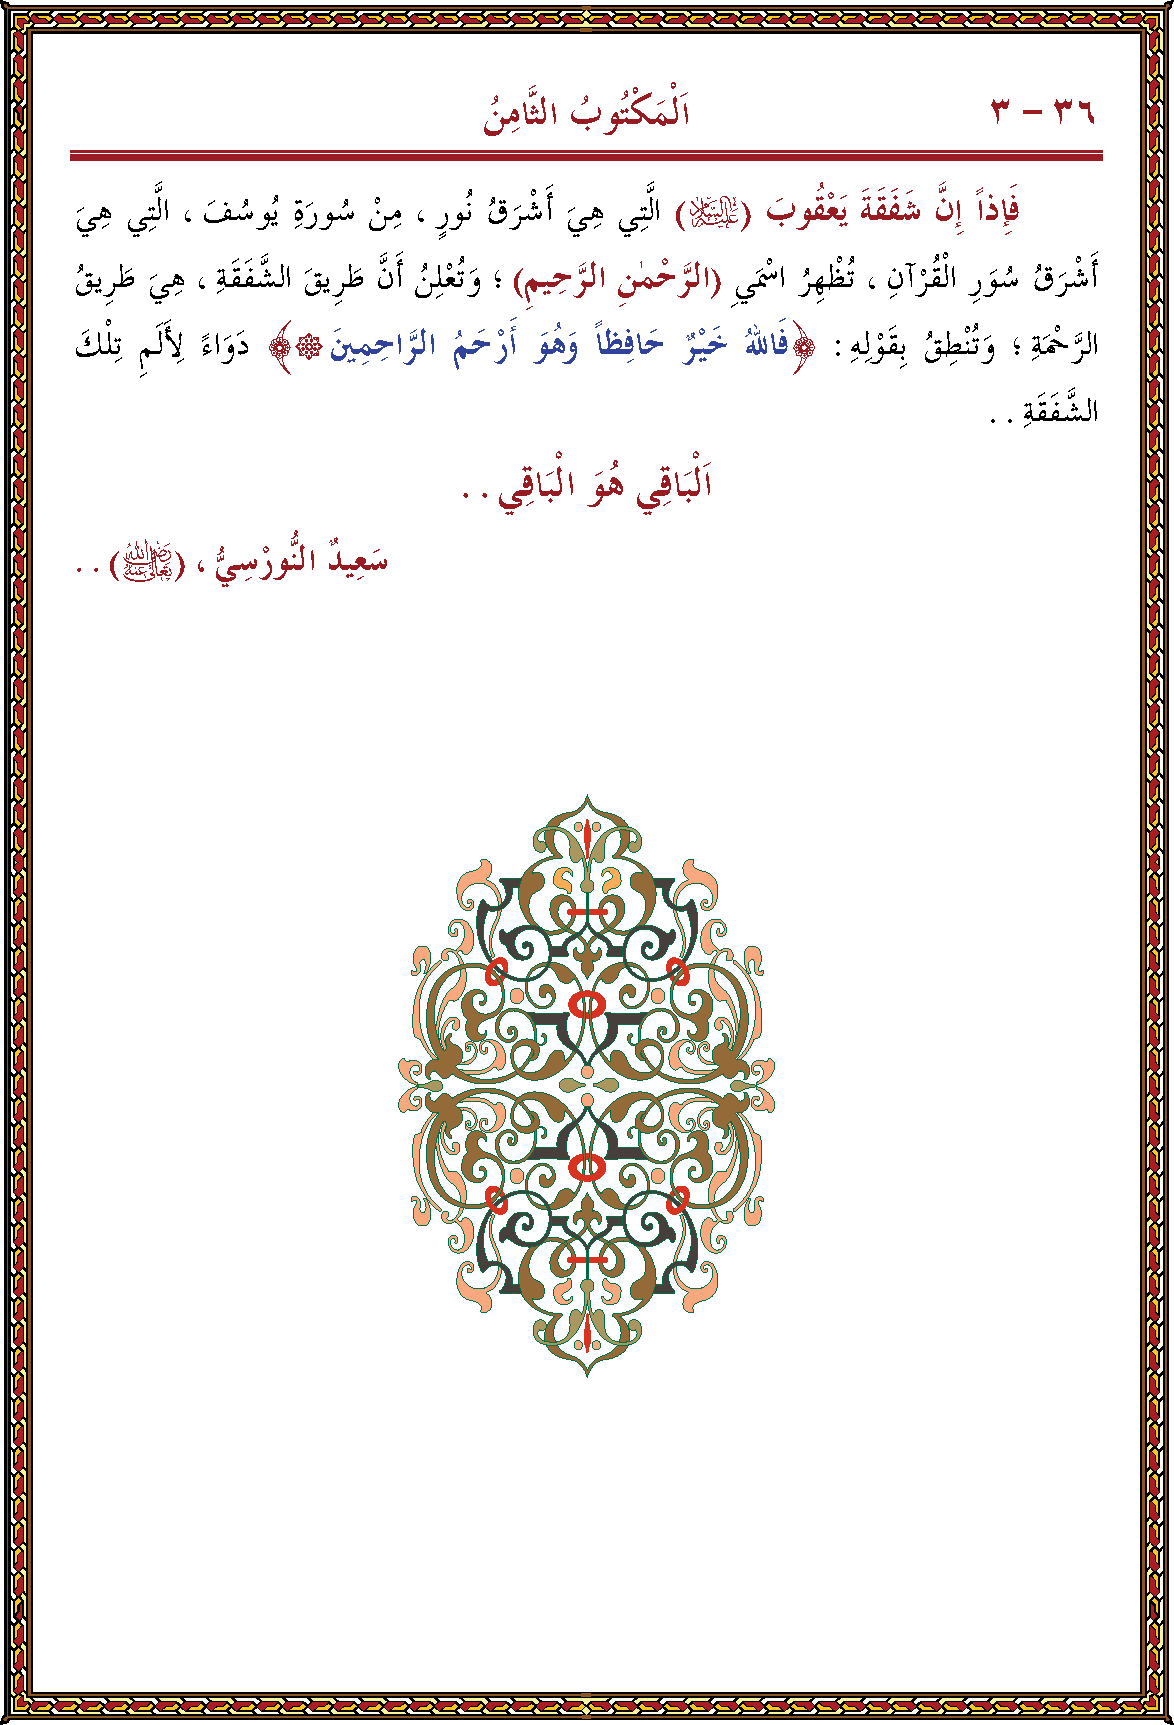 ٣٦ – ٣
اَلْمَكْتُوبُ الثَّامِنُ
فَإِذاً إِنَّ شَفَقَةَ يَعْقُوبَ (عَلَيْهِ السَّلَامُ) الَّتِي هِيَ أَشْرَقُ نُورٍ ، مِنْ سُورَةِ يُوسُفَ ، الَّتِي هِيَ
أَشْرَقُ سُوَرِ الْقُرْآنِ ، تُظْهِرُ اسْمَيِ (الرَّحْمٰنِ الرَّحِيمِ) ؛ وَتُعْلِنُ أَنَّ طَرِيقَ الشَّفَقَةِ ، هِيَ طَرِيقُ
الرَّحْمَةِ ؛ وَتُنْطِقُ بِقَوْلِهِ : ﴿فَاللهُ خَيْرٌ حَافِظاً وَهُوَ أَرْحَمُ الرَّاحِمِينَ۞﴾ دَوَاءً لِأَلَمِ تِلْكَ
الشَّفَقَةِ . .
اَلْبَاقِي هُوَ الْبَاقِي . .
سَعِيدٌ النُّورْسِيُّ ، (رَضِيَ اللهُ تَعَالَى عَنْهُ) . .